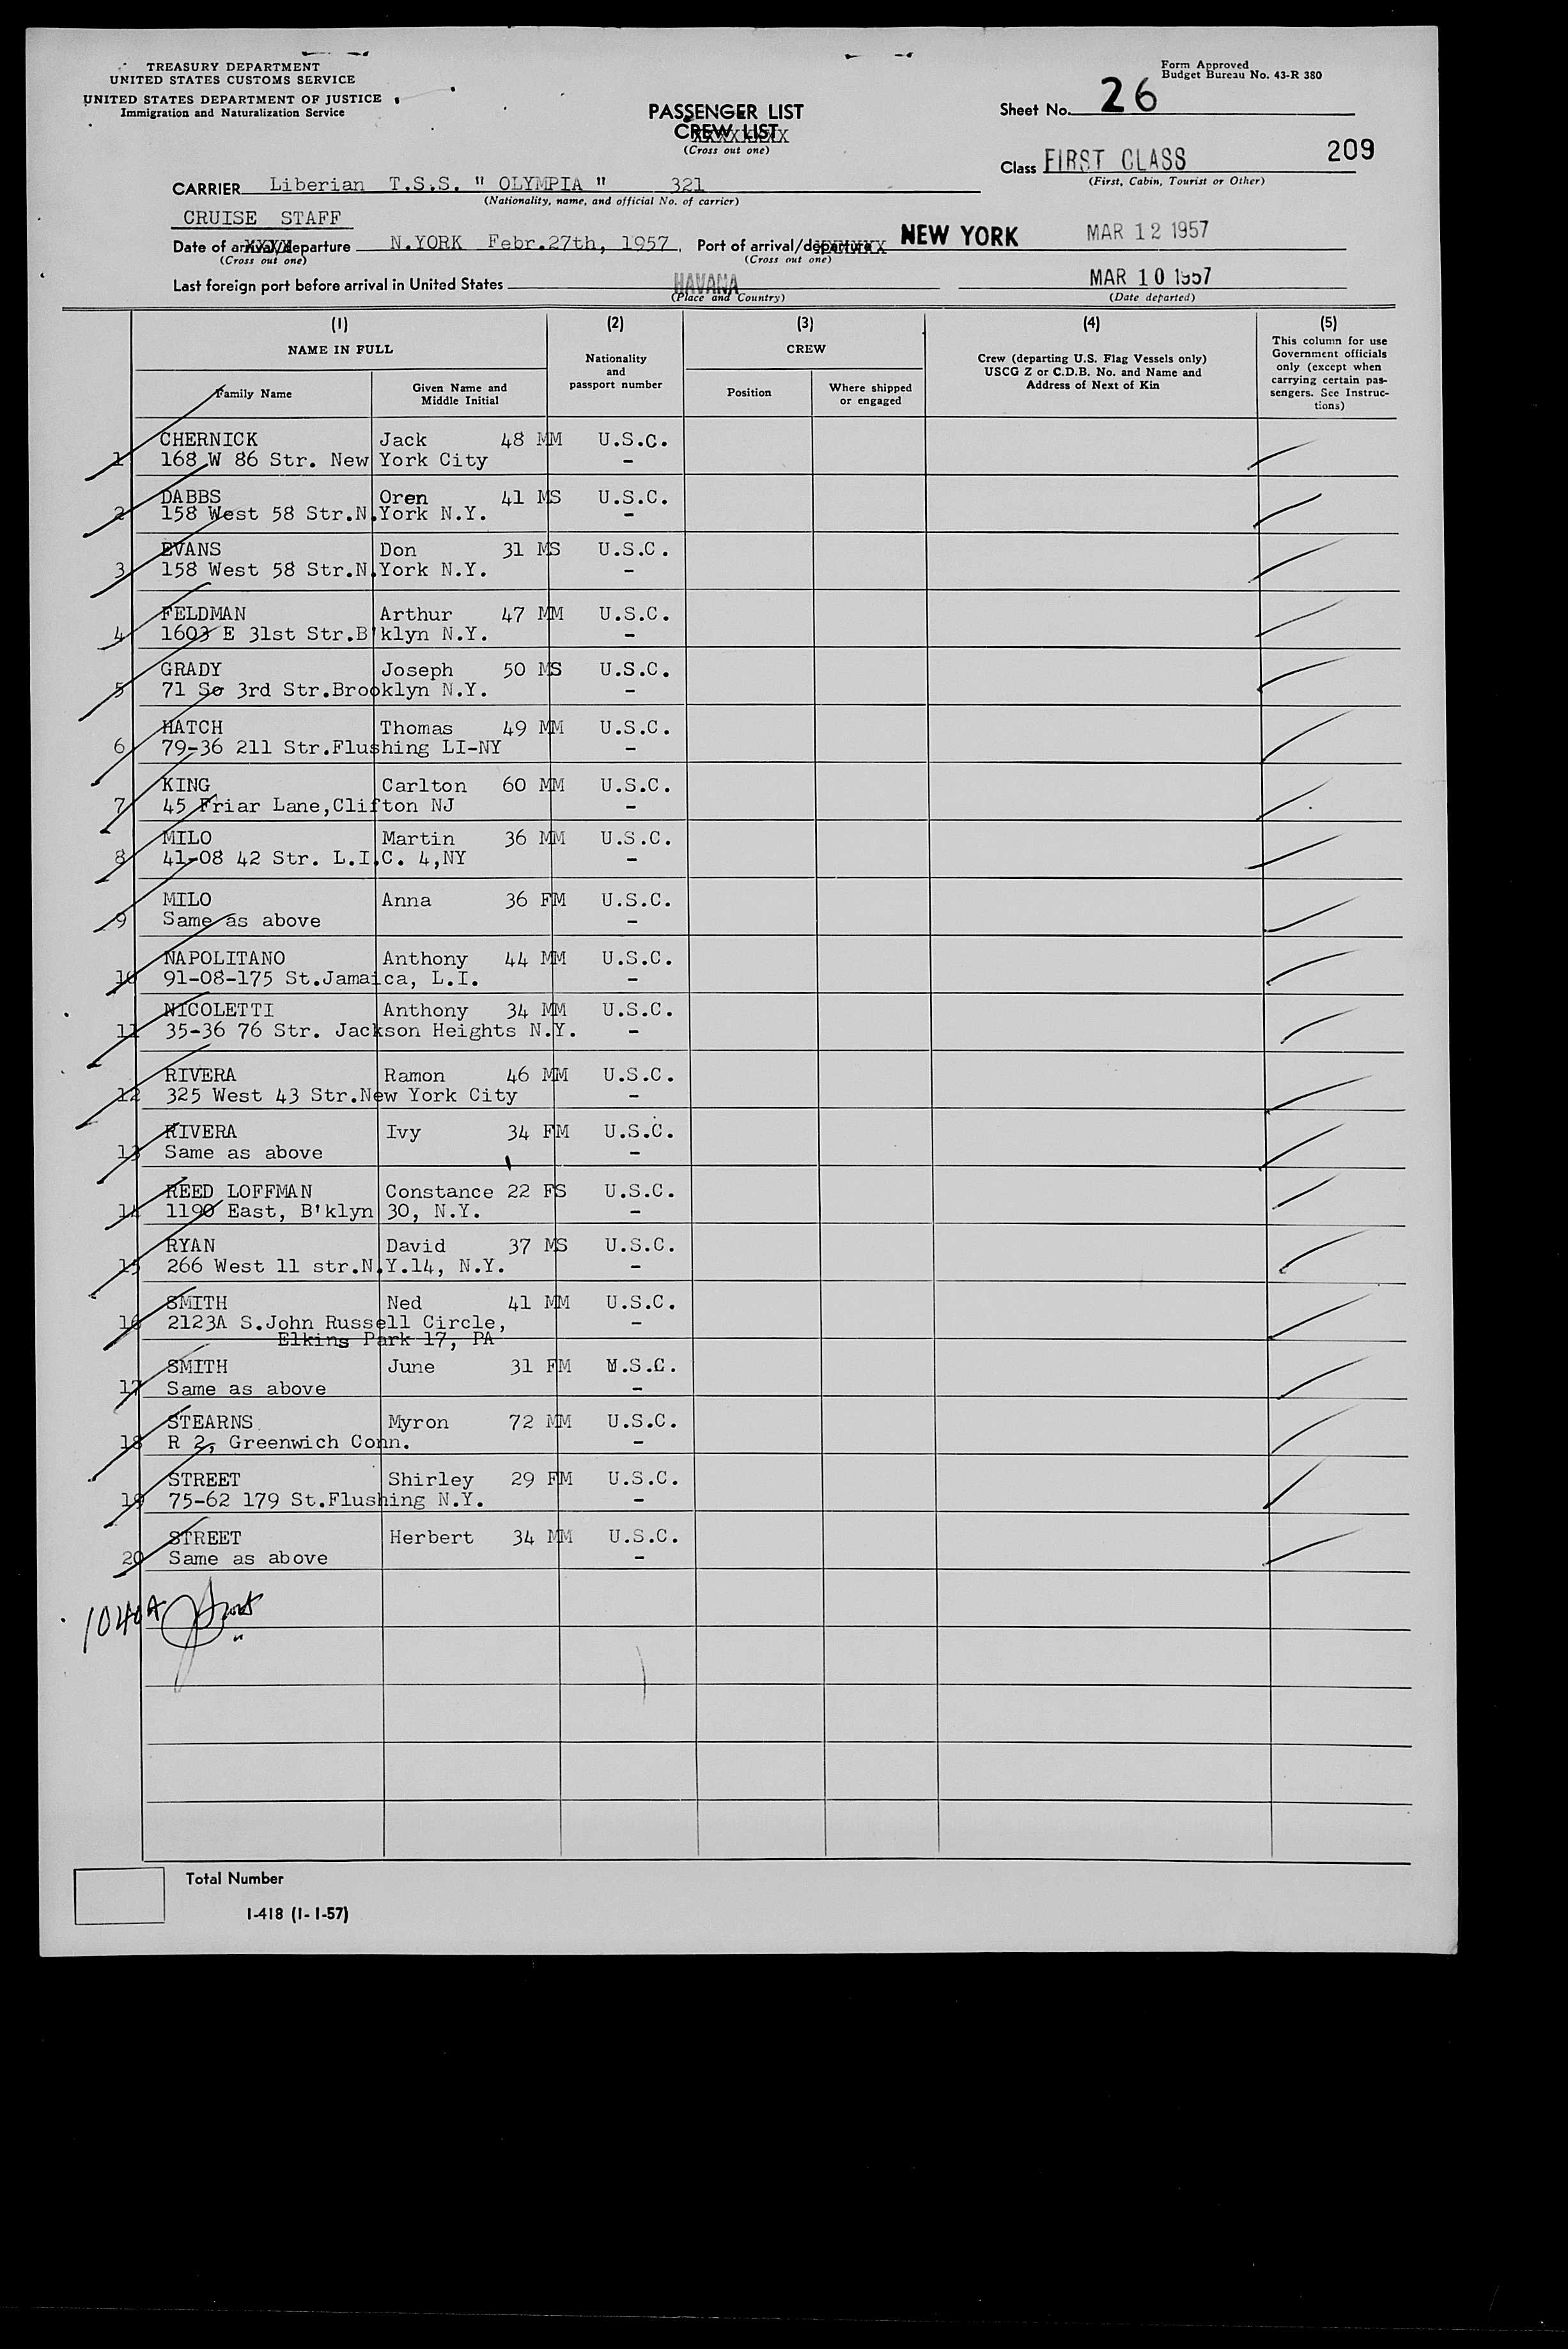 TREASURY DEPARTMENT
UNITED STATES CUSTOMS SERVICE
UNITED STATES DEPARTMENT OF JUSTICE
Immigration and Naturalization Service
Form Approved
Budget Bureau No. 43-R 380
PASSENGER LIST
CREW LIST
(Cross out one)
Sheet No. 26
Class FIRST CLASS 209
(First, Cabin, Tourist or Other)
CARRIER Liberian T.S.S. " OLYMPIA " 321
(Nationality, name, and official No. of carrier)
CRUISE STAFF
Date of arrival/departure N.YORK Febr.27th, 1957. Port of arrival/departure NEW YORK MAR 12 1957
(Cross out one) (Cross out one)
Last foreign port before arrival in United States HAVANA MAR 10 1957
(Place and Country) (Date departed)
(1) (2) (3) (4) (5)
NAME IN FULL
Family Name
Given Name and Middle Initial
Nationality and passport number
CREW
Position
Where shipped or engaged
Crew (departing U.S. Flag Vessels only)
USCG Z or C.D.B. No. and Name and
Address of Next of Kin
This column for use
Government officials
only (except when
carrying certain pas-
sengers. See Instruc-
tions)
1 CHERNICK Jack 48 MM U.S.C.
168 W 86 Str. New York City -
2 DABBS Oren 41 MS U.S.C.
158 West 58 Str.N.York N.Y. -
3 EVANS Don 31 MS U.S.C.
158 West 58 Str.N.York N.Y. -
4 FELDMAN Arthur 47 MM U.S.C.
1603 E 31st Str.B'klyn N.Y. -
5 GRADY Joseph 50 MS U.S.C.
71 So 3rd Str.Brooklyn N.Y. -
6 HATCH Thomas 49 MM U.S.C.
79-36 211 Str.Flushing LI-NY -
7 KING Carlton 60 MM U.S.C.
45 Friar Lane,Clifton NJ -
8 MILO Martin 36 MM U.S.C.
41-08 42 Str. L.I.C. 4,NY -
9 MILO Anna 36 FM U.S.C.
Same as above -
10 NAPOLITANO Anthony 44 MM U.S.C.
91-08-175 St.Jamaica, L.I. -
11 NICOLETTI Anthony 34 MM U.S.C.
35-36 76 Str. Jackson Heights N.Y. -
12 RIVERA Ramon 46 MM U.S.C.
325 West 43 Str.New York City -
13 RIVERA Ivy 34 FM U.S.C.
Same as above -
14 REED LOFFMAN Constance 22 FS U.S.C.
1190 East, B'klyn 30, N.Y. -
15 RYAN David 37 MS U.S.C.
266 West 11 str.N.Y.14, N.Y. -
16 SMITH Ned 41 MM U.S.C.
2123A S.John Russell Circle, -
Elkins Park 17, PA
17 SMITH June 31 FM U.S.C.
Same as above -
18 STEARNS Myron 72 MM U.S.C.
R 2, Greenwich Conn. -
19 STREET Shirley 29 FM U.S.C.
75-62 179 St.Flushing N.Y. -
20 STREET Herbert 34 MM U.S.C.
Same as above -
1040A
Total Number
I-418 (1-1-57)